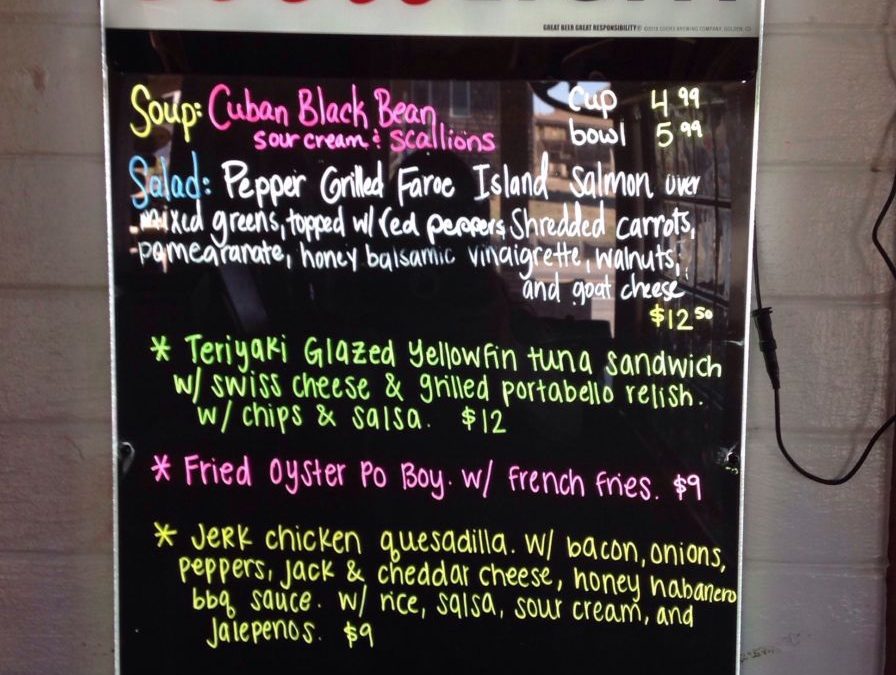 GREAT BEER GREAT RESPONSIBILITY®
Soup: Cuban Black Bean Cup 4.99
sour cream & scallions bowl 5.99
Salad: Pepper Grilled Faroe Island Salmon over
mixed greens, topped w/ red peppers, Shredded carrots,
pomegranate, honey balsamic vinaigrette, walnuts,
and goat cheese
$12.50
* Teriyaki Glazed Yellowfin tuna sandwich
w/ swiss cheese & grilled portabello relish.
w/ chips & salsa. $12
* Fried Oyster Po Boy. w/ french fries. $9
* Jerk chicken quesadilla. w/ bacon, onions,
peppers, jack & cheddar cheese, honey habanero
bbq sauce. w/ rice, salsa, sour cream, and
jalepenos. $9